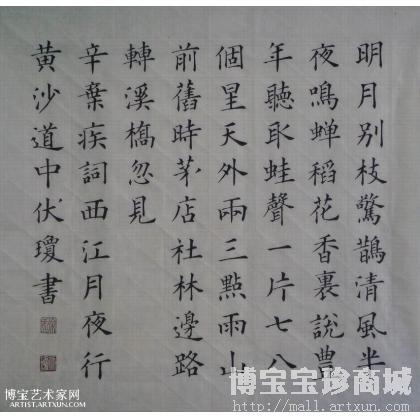 明月别枝驚鵲清風半
夜鳴蝉稻花香裏説豊
年聽取蛙聲一片七八
個星天外兩三點雨山
前舊時茅店社林邊路
轉溪橋忽見
辛棄疾詞西江月夜行
黄沙道中伏瓊書
博宝宝珍商城
http://mall.artxun.com
博宝艺术家网
ARTIST.ARTXUN.COM